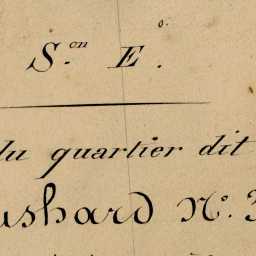 S.on E.
du quartier dit
ushard N.o 3